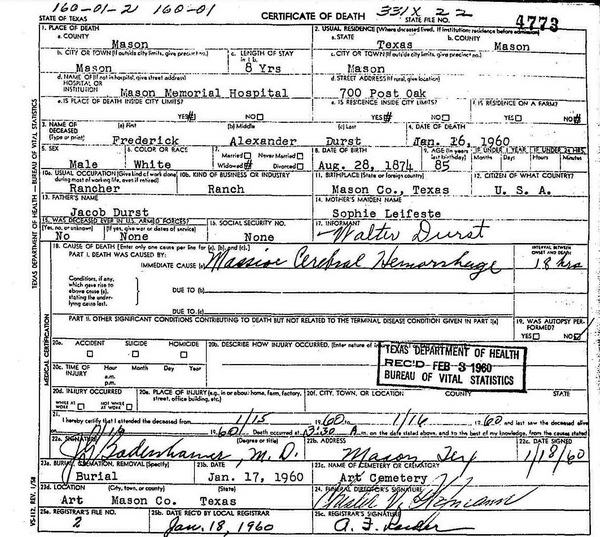 160-01-2 160-01
STATE OF TEXAS
CERTIFICATE OF DEATH
331X 22
STATE FILE NO.
4773
1. PLACE OF DEATH
a. COUNTY
Mason
2. USUAL RESIDENCE (Where deceased lived. If institution: residence before admission)
a. STATE
Texas
b. COUNTY
Mason
b. CITY OR TOWN (If outside city limits, give precinct no.)
Mason
c. LENGTH OF STAY in 1 b.
8 Yrs
c. CITY OR TOWN (If outside city limits, give precinct no.)
Mason
d. NAME OF (If not in hospital, give street address) HOSPITAL OR INSTITUTION
Mason Memorial Hospital
d. STREET ADDRESS (If rural, give location)
700 Post Oak
e. IS PLACE OF DEATH INSIDE CITY LIMITS?
YES NO
e. IS RESIDENCE INSIDE CITY LIMITS?
YES NO
f. IS RESIDENCE ON A FARM?
YES NO
3. NAME OF DECEASED (Type or print)
(a) First
Frederick
(b) Middle
Alexander
(c) Last
Durst
4. DATE OF DEATH
Jan. 16, 1960
5. SEX
Male
6. COLOR OR RACE
White
7. Married Never Married
Widowed Divorced
8. DATE OF BIRTH
Aug. 28, 1874
9. AGE (In years last birthday)
85
IF UNDER 1 YEAR
Months Days
IF UNDER 24 HRS
Hours Minutes
10a. USUAL OCCUPATION (Give kind of work done during most of working life, even if retired)
Rancher
10b. KIND OF BUSINESS OR INDUSTRY
Ranch
11. BIRTHPLACE (State or foreign country)
Mason Co., Texas
12. CITIZEN OF WHAT COUNTRY?
U. S. A.
13. FATHER'S NAME
Jacob Durst
14. MOTHER'S MAIDEN NAME
Sophie Leifeste
15. WAS DECEASED EVER IN U.S. ARMED FORCES?
(Yes, no, or unknown)
No
(If yes, give war or dates of service)
None
16. SOCIAL SECURITY NO.
None
17. INFORMANT
Walter Durst
18. CAUSE OF DEATH [Enter only one cause per line for (a), (b), and (c).]
PART I. DEATH WAS CAUSED BY:
IMMEDIATE CAUSE (a)
Massive Cerebral Hemorrhage
INTERVAL BETWEEN ONSET AND DEATH
18 hrs
Conditions, if any, which gave rise to above cause (a), stating the underlying cause last.
DUE TO (b)
DUE TO (c)
PART II. OTHER SIGNIFICANT CONDITIONS CONTRIBUTING TO DEATH BUT NOT RELATED TO THE TERMINAL DISEASE CONDITION GIVEN IN PART I(a)
19. WAS AUTOPSY PERFORMED?
YES NO
20a. ACCIDENT SUICIDE HOMICIDE
20b. DESCRIBE HOW INJURY OCCURRED. (Enter nature of
TEXAS DEPARTMENT OF HEALTH
REC'D FEB 3 1960
BUREAU OF VITAL STATISTICS
20c. TIME OF INJURY
Hour Month Day Year
a.m.
p.m.
20d. INJURY OCCURRED
WHILE AT WORK NOT WHILE AT WORK
20e. PLACE OF INJURY (e.g., in or about home, farm, factory, street, office building, etc.)
20f. CITY, TOWN, OR LOCATION
COUNTY
STATE
21. I hereby certify that I attended the deceased from 1/15 1960 to 1/16 1960 and last saw the deceased alive
on 1/16 1960. Death occurred at 3:30 A.m. on the date stated above, and to the best of my knowledge, from the causes stated
22a. SIGNATURE
Bodenhamer, M.D.
(Degree or title)
22b. ADDRESS
Mason Tex
22c. DATE SIGNED
1/18/60
23a. BURIAL, CREMATION, REMOVAL (Specify)
Burial
23b. DATE
Jan. 17, 1960
23c. NAME OF CEMETERY OR CREMATORY
Art Cemetery
23d. LOCATION (City, town, or county) (State)
Art Mason Co. Texas
24. FUNERAL DIRECTOR'S SIGNATURE
25a. REGISTRAR'S FILE NO.
2
25b. DATE REC'D BY LOCAL REGISTRAR
Jan. 18, 1960
25c. REGISTRAR'S SIGNATURE
TEXAS DEPARTMENT OF HEALTH — BUREAU OF VITAL STATISTICS
MEDICAL CERTIFICATION
VS-112, REV. 1/58